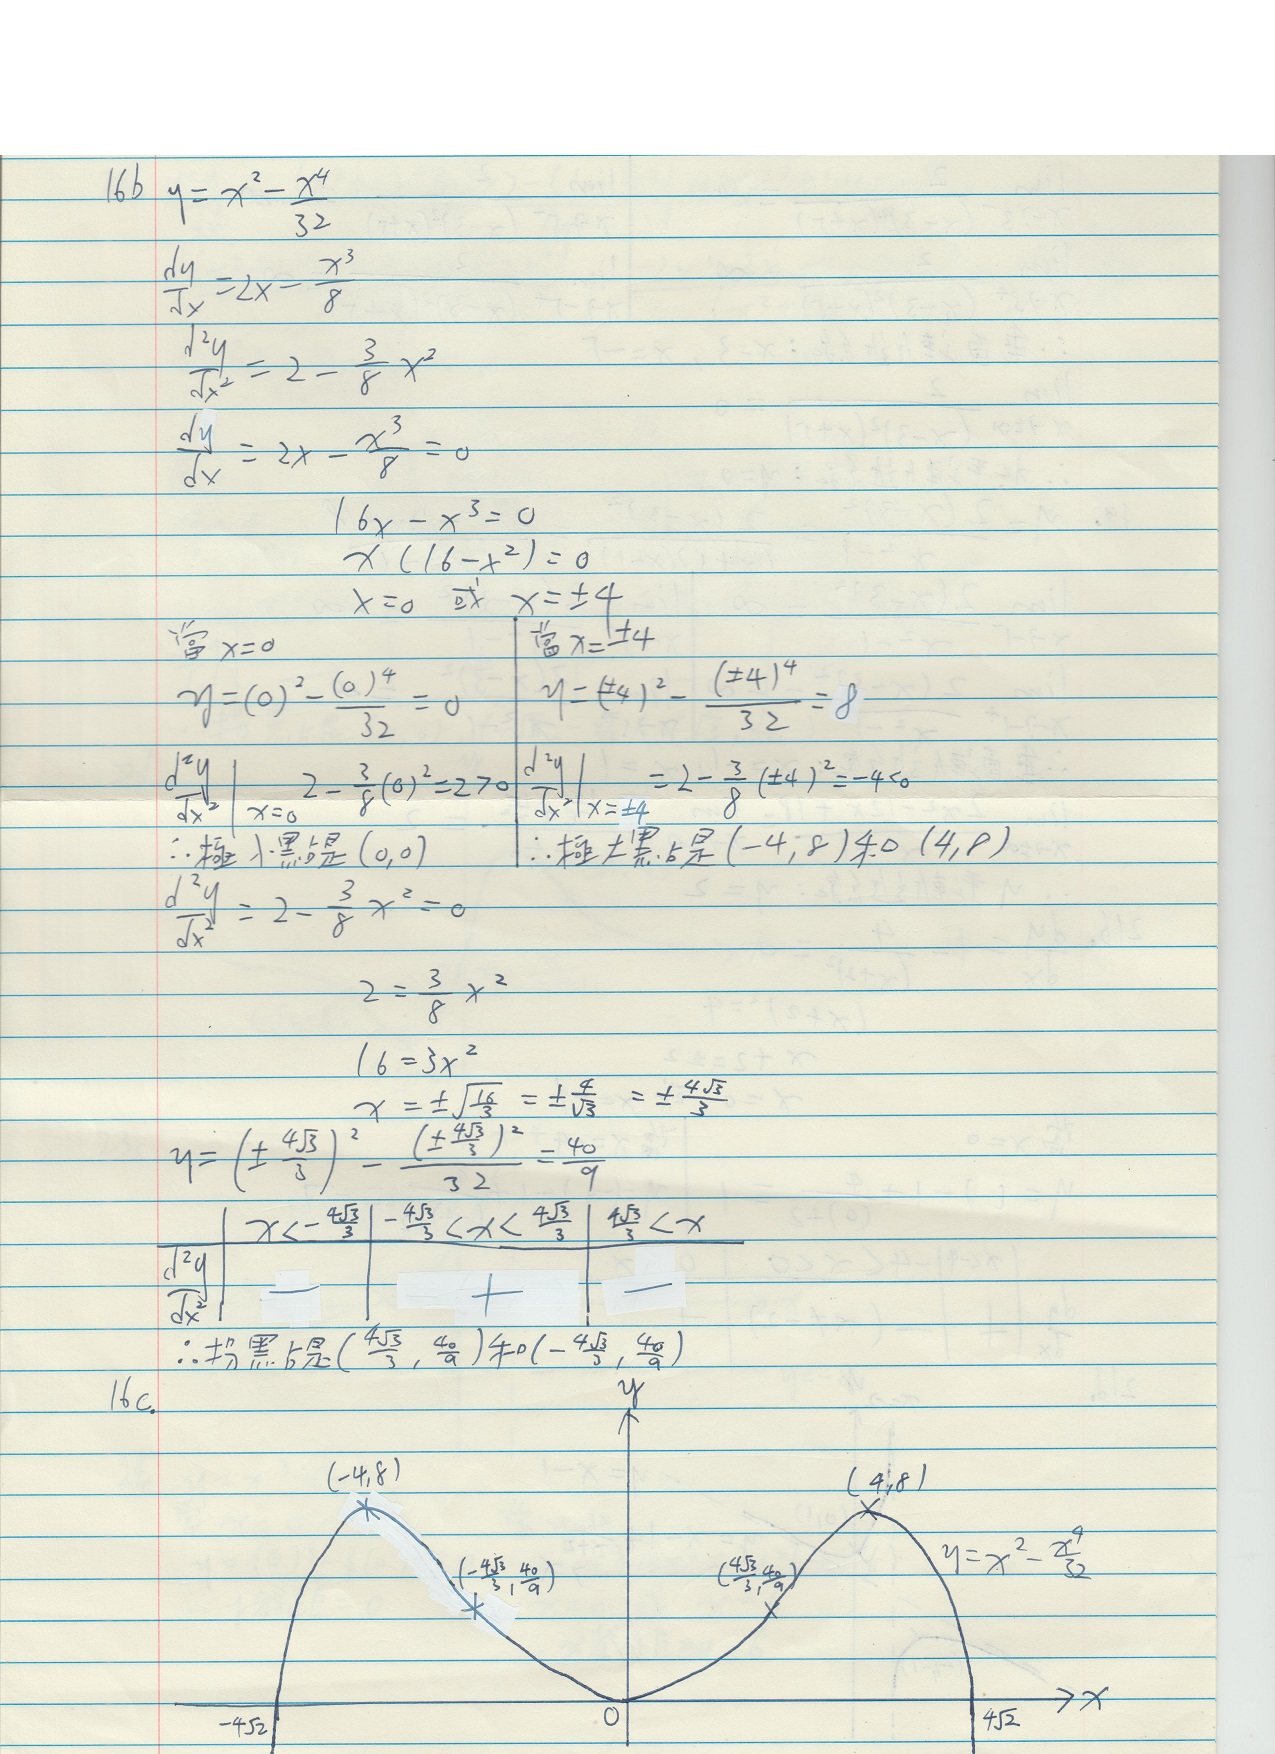 16b y = x² - x⁴/32
dy/dx = 2x - x³/8
d²y/dx² = 2 - 3/8 x²
dy/dx = 2x - x³/8 = 0
16x - x³ = 0
x(16 - x²) = 0
x = 0 或 x = ±4
當 x = 0
y = (0)² - (0)⁴/32 = 0
d²y/dx² |x=0 2 - 3/8 (0)² = 2 > 0
∴ 極小點是 (0,0)
當 x = ±4
y = (±4)² - (±4)⁴/32 = 8
d²y/dx² |x=±4 = 2 - 3/8 (±4)² = -4 < 0
∴ 極大點是 (-4,8) 和 (4,8)
d²y/dx² = 2 - 3/8 x² = 0
2 = 3/8 x²
16 = 3x²
x = ±√(16/3) = ±4/√3 = ±4√3/3
y = (±4√3/3)² - (±4√3/3)²/32 = 40/9
x < -4√3/3 | -4√3/3 < x < 4√3/3 | 4√3/3 < x
d²y/dx² | - | + | -
∴ 拐點是 (4√3/3, 40/9) 和 (-4√3/3, 40/9)
16c.
y
(-4,8) (4,8)
y = x² - x⁴/32
(-4√3/3, 40/9) (4√3/3, 40/9)
x
-4√2 0 4√2